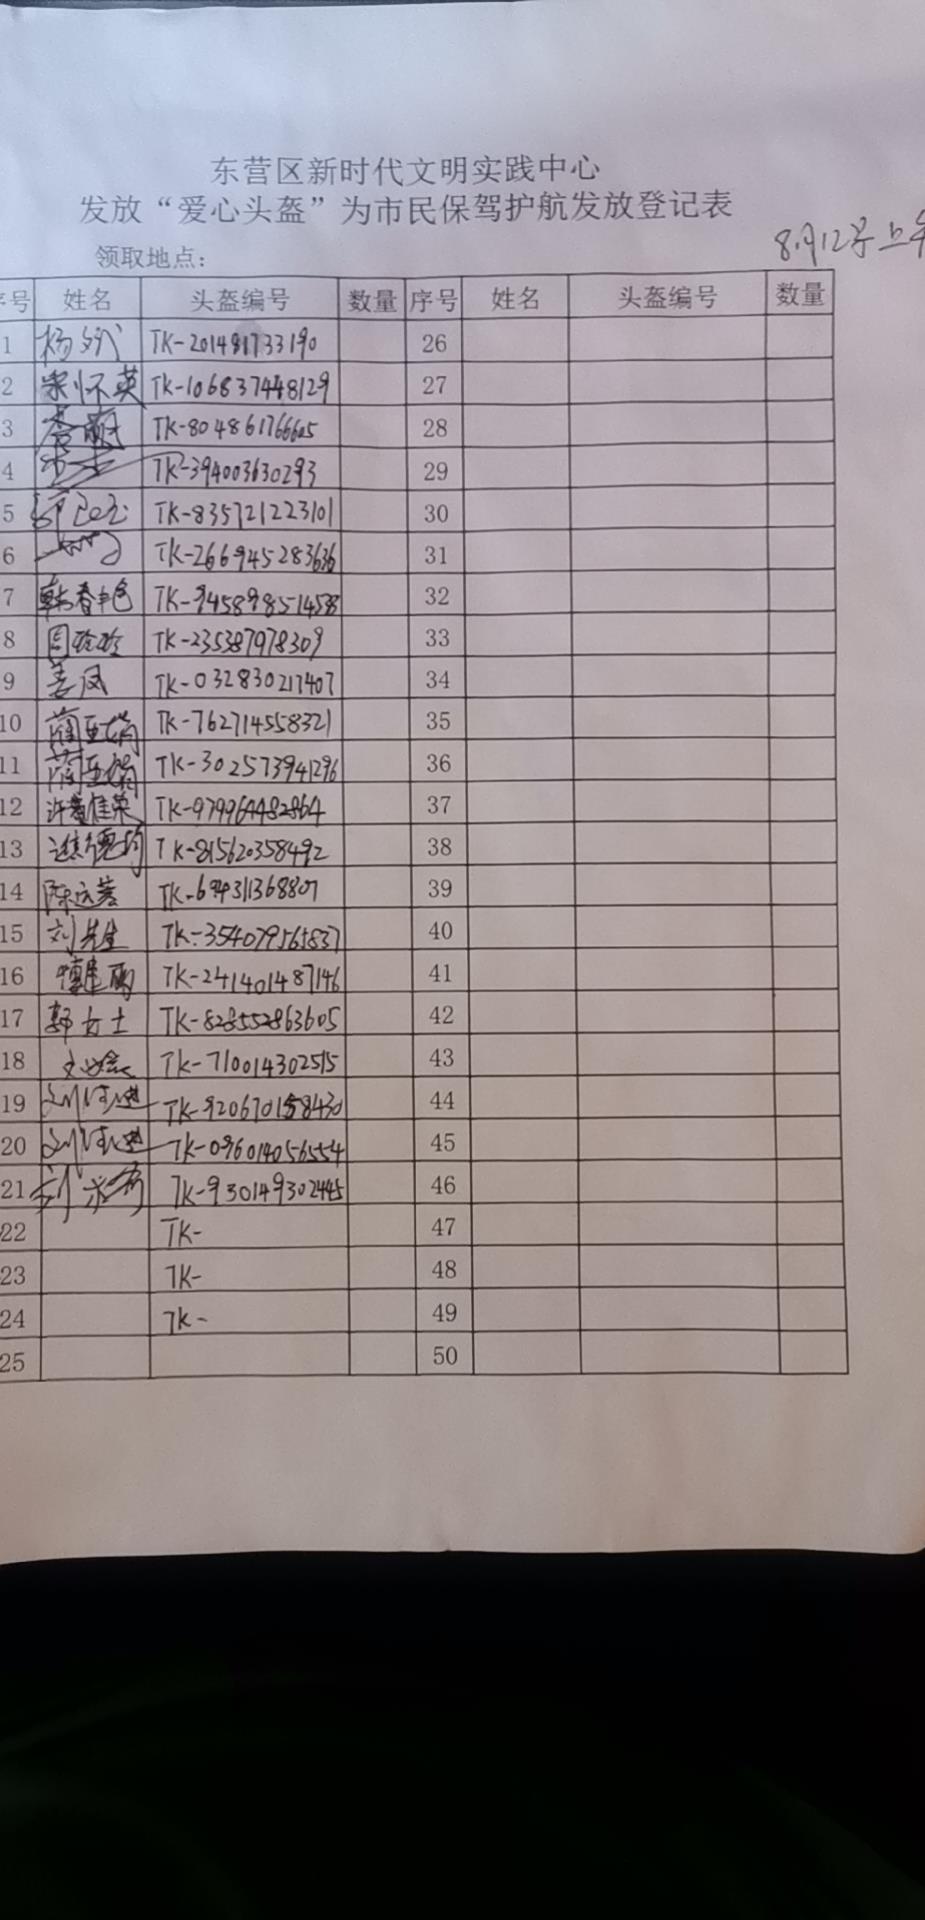 东营区新时代文明实践中心
发放“爱心头盔”为市民保驾护航发放登记表
8月12号上午
领取地点：
序号 姓名 头盔编号 数量 序号 姓名 头盔编号 数量
1 杨 TK-201481733190 26
2 宋怀英 TK-106837448129 27
3 李 TK-804861766605 28
4 TK-394003630293 29
5 TK-835721223101 30
6 TK-266945283636 31
7 韩春艳 TK-945898514538 32
8 周玲玲 TK-235387978309 33
9 姜凤 TK-032830217407 34
10 蔺亚娟 TK-762714558321 35
11 蔺亚娟 TK-302573941296 36
12 TK-979964482864 37
13 TK-815620358492 38
14 陈 TK-694311368807 39
15 刘先生 TK-354079565837 40
16 TK-241401487146 41
17 郭女士 TK-828552863605 42
18 TK-710014302515 43
19 TK-920670158430 44
20 TK-096014056554 45
21 刘 TK-930149302445 46
22 TK- 47
23 TK- 48
24 TK- 49
25 50